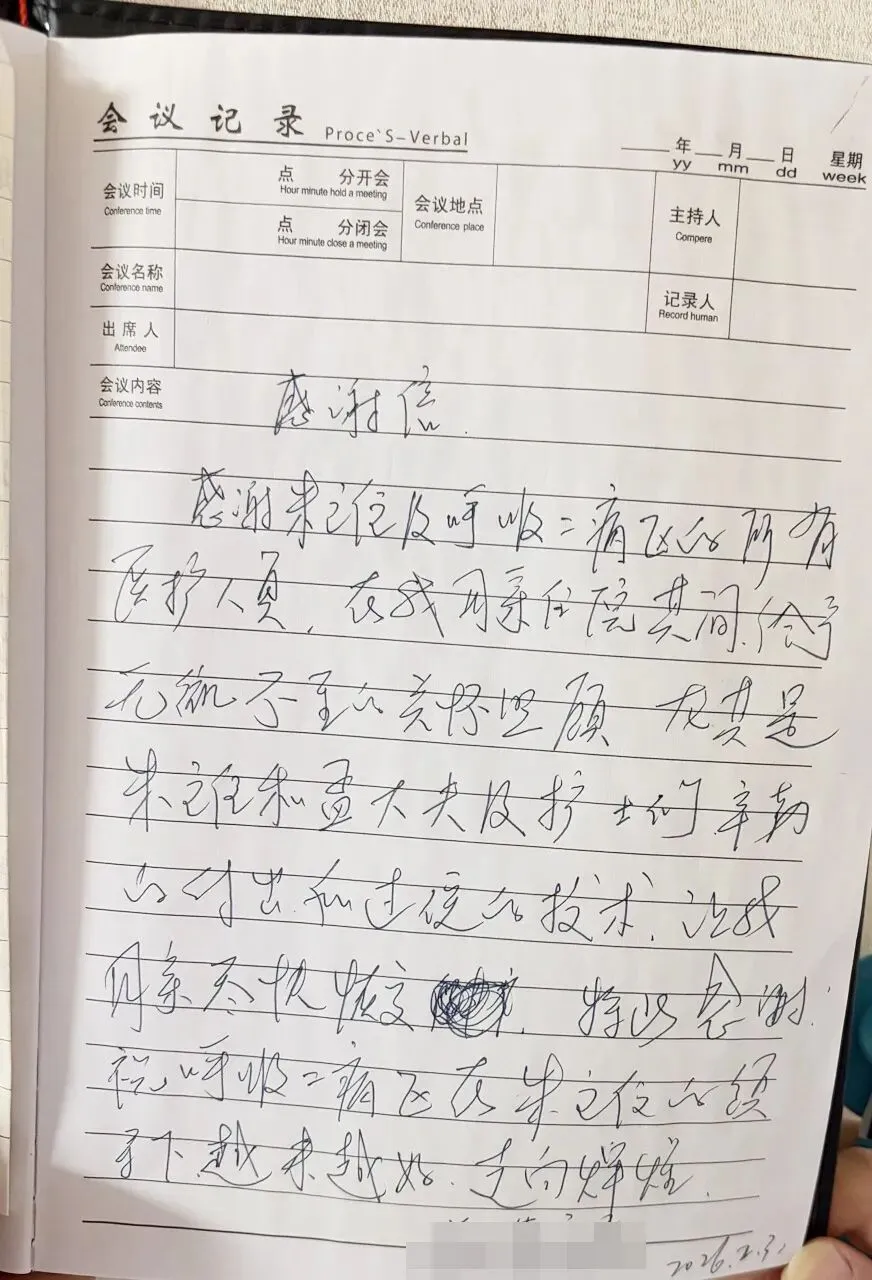 会议记录 Proce`S-Verbal
年 月 日 星期
yy mm dd week
会议时间 点 分开会 会议地点 主持人
Conference time Hour minute hold a meeting Conference place Compere
点 分闭会
Hour minute close a meeting
会议名称 记录人
Conference name Record human
出席人
Attendee
会议内容
Conference contents
感谢信.
感谢朱主任及呼吸二病区的所有
医护人员,在我母亲住院其间,给予
无微不至的关怀照顾 尤其是
朱主任和孟大夫及护士们辛勤
的付出和过硬的技术,让我
母亲尽快恢复 特此感谢.
祝呼吸二病区在朱主任的领
导下越来越好.走向辉煌.
2026.2.3